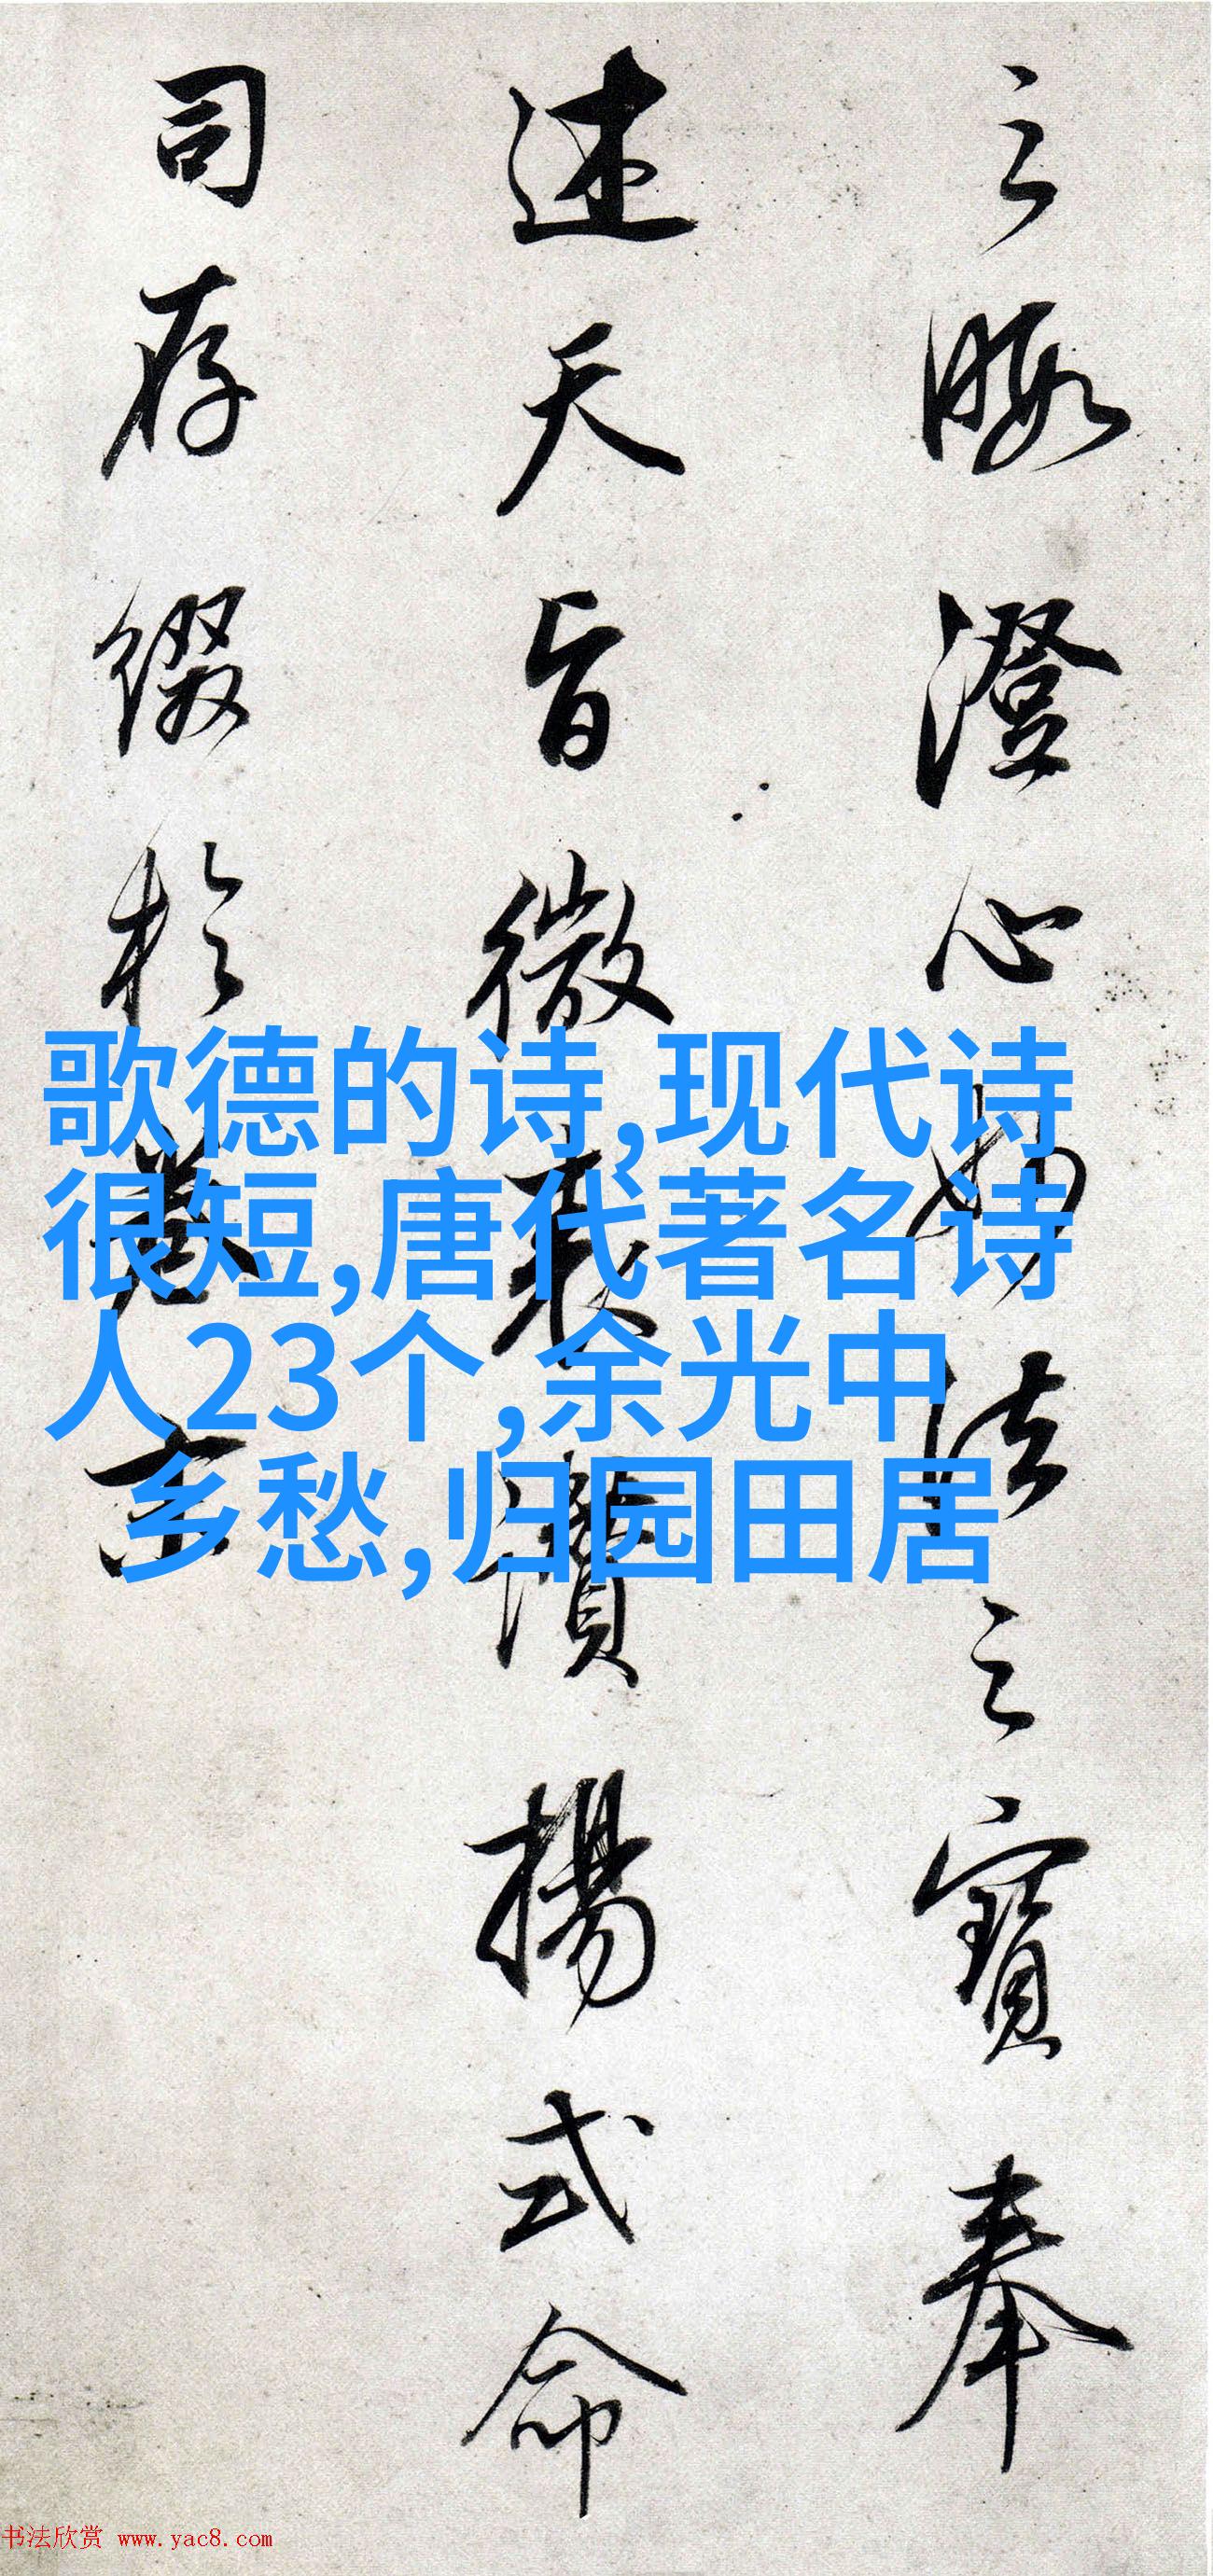 之暇澄心妙法之寶奉
述天旨微表讚揚式命
司存綴於卷
歌德的诗,现代诗
很短,唐代著名诗
人23个,余光中
乡愁,归园田居
书法欣赏 www.yac8.com